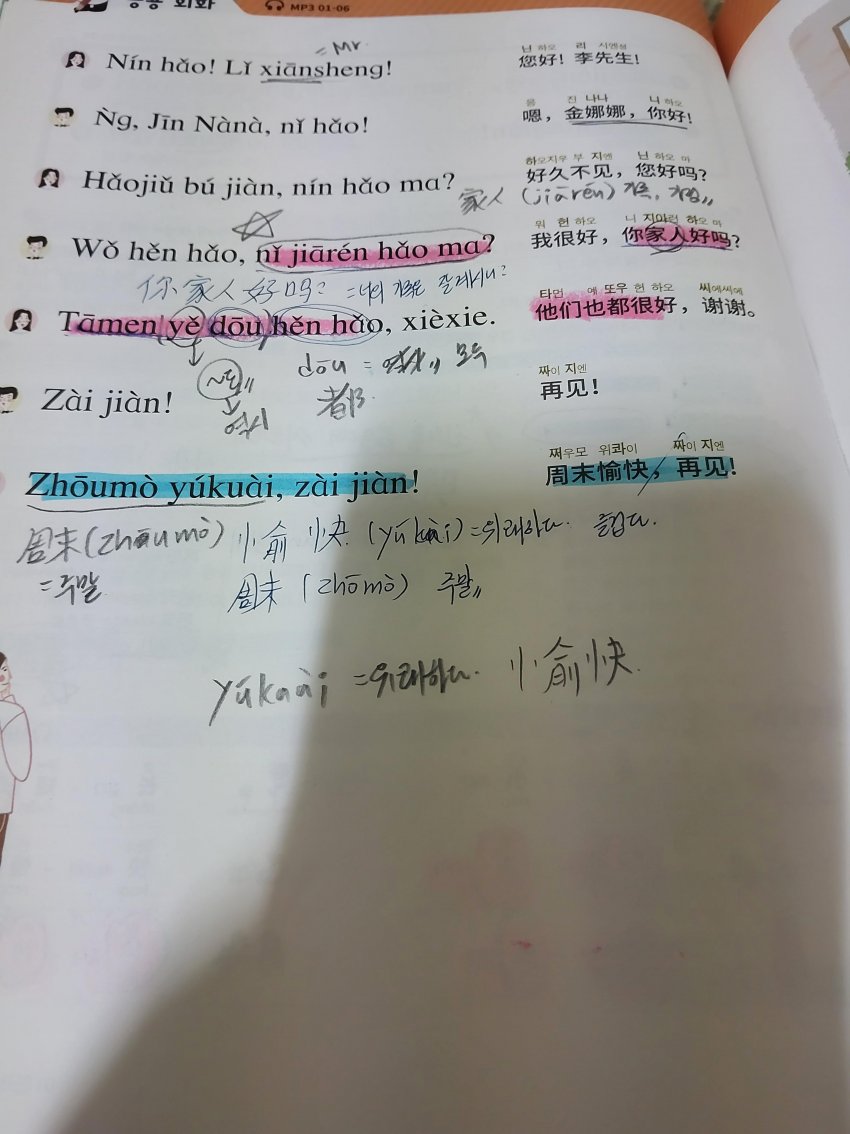 응용 회화 MP3 01-06
= Mr
Nín hǎo! Lǐ xiānsheng!
닌 하오 리 시엔셩
您好! 李先生!
Ǹg, Jīn Nànà, nǐ hǎo!
응 진 나나 니 하오
嗯，金娜娜，你好!
Hǎojiǔ bú jiàn, nín hǎo ma?
하오지우 부 지엔 닌 하오 마
好久不见，您好吗?
家人 (jiārén) 가족,
Wǒ hěn hǎo, nǐ jiārén hǎo ma?
워 헌 하오 니 지아런 하오 마
我很好，你家人好吗?
你家人好吗? = 너의 가족은 잘 계시니?
Tāmen yě dōu hěn hǎo, xièxie.
타먼 예 또우 헌 하오 씨에씨에
他们也都很好，谢谢。
dōu = 모두
~도
都
역시
Zài jiàn!
짜이 지엔
再见!
Zhōumò yúkuài, zài jiàn!
쩌우모 위콰이 짜이 지엔
周末愉快，再见!
周末(zhōumò) 愉快 (yúkuài) = 유쾌하다. 즐겁다.
= 주말
周末 (zhōmò) 주말
yúkuài = 유쾌하다. 愉快.